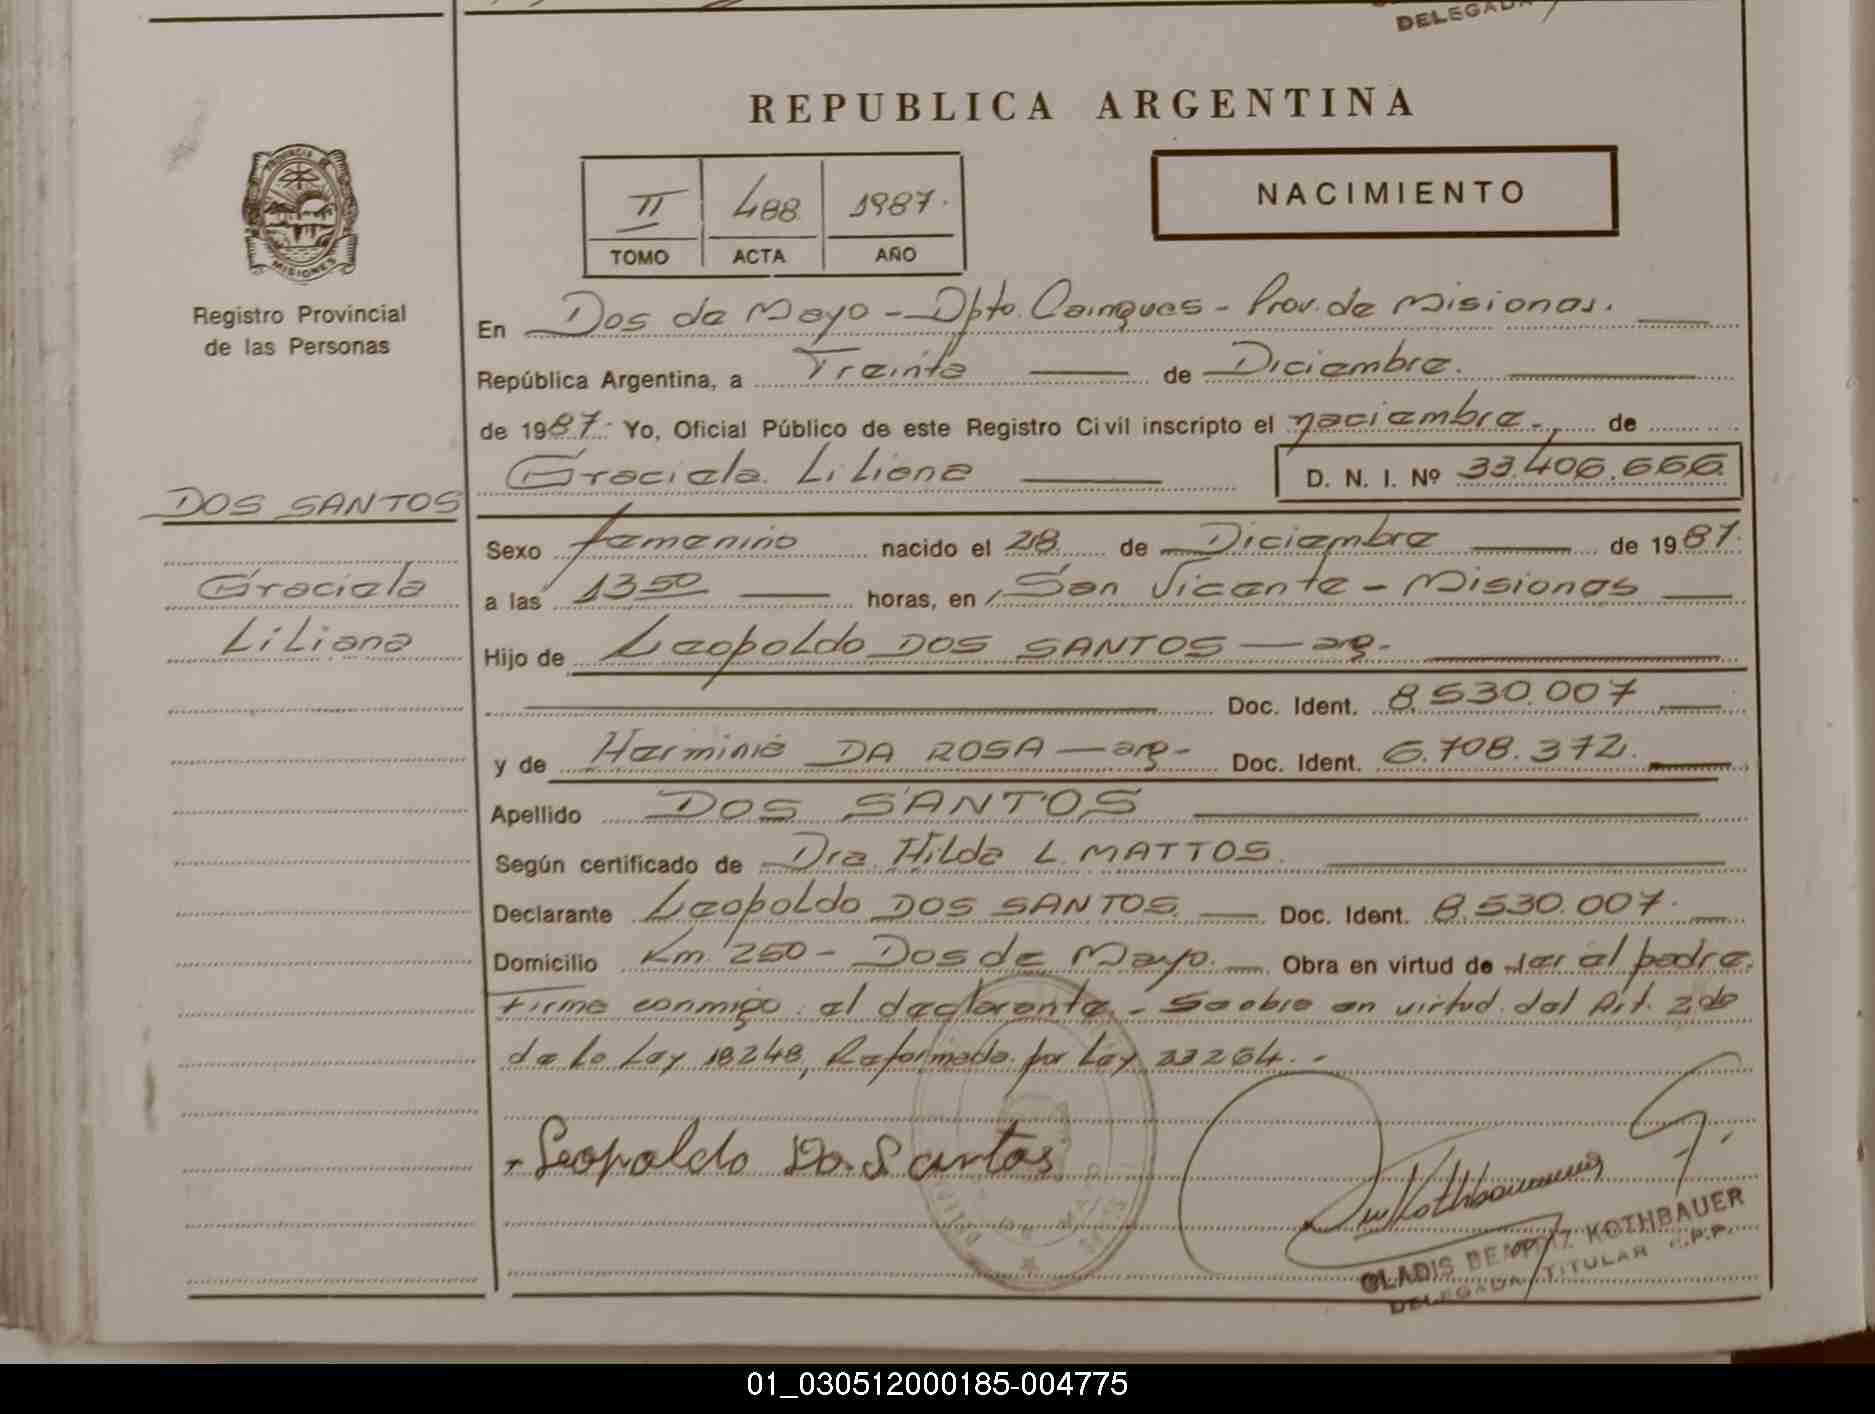 DELEGADA
REPUBLICA ARGENTINA
NACIMIENTO
II 488 1987.
TOMO ACTA AÑO
PROVINCIA DE
MISIONES
Registro Provincial
de las Personas
En Dos de Mayo - Dpto. Cainguas - Prov. de Misiones.
República Argentina, a Treinta de Diciembre.
de 1987. Yo, Oficial Público de este Registro Civil inscripto el naciembre. de
Graciela Liliana D. N. I. Nº 33.406.666
DOS SANTOS
Sexo femenino nacido el 28 de Diciembre de 1987.
Graciela
a las 13 50 horas, en San Vicente - Misiones
Liliana
Hijo de Leopoldo DOS SANTOS - arg.
Doc. Ident. 8.530.007
y de Herminia DA ROSA - arg - Doc. Ident. 6.708.372.
Apellido DOS SANTOS
Según certificado de Dra. Hilda L. MATTOS.
Declarante Leopoldo DOS SANTOS Doc. Ident. 8.530.007.
Domicilio Km. 250 - Dos de Mayo. Obra en virtud de ser el padre.
Firma conmigo el declarante. - Se obra en virtud del Art. 2do
de la Ley 18248, Reformada por Ley 23264. -
Leopoldo Do. Santos
GLADIS BEATRIZ KOTHBAUER
DELEGADA TITULAR R.P.P.
01_030512000185-004775